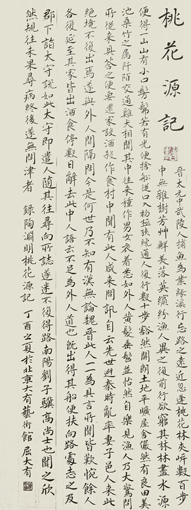 桃花源記
晉太元中武陵人捕魚為業緣溪行忘路之遠近忽逢桃花林夾岸數百步
中無雜樹芳草鮮美落英繽紛漁人甚異之復前行欲窮其林林盡水源
便得一山山有小口髣髴若有光便捨船從口入初極狹纔通人復行數十步豁然開朗土地平曠屋舍儼然有良田美
池桑竹之屬阡陌交通雞犬相聞其中往來種作男女衣著悉如外人黃髮垂髫並怡然自樂見漁人乃大驚問
所從來具答之便要還家設酒殺雞作食村中聞有此人咸來問訊自云先世避秦時亂率妻子邑人來此
絕境不復出焉遂與外人間隔問今是何世乃不知有漢無論魏晉此人一一為具言所聞皆歎惋餘人
各復延至其家皆出酒食停數日辭去此中人語云不足為外人道也既出得其船便扶向路處處志之及
郡下詣太守說如此太守即遣人隨其往尋向所誌遂迷不復得路南陽劉子驥高尚士也聞之欣
然規往未果尋病終後遂無問津者 錄陶淵明桃花源記 丁酉之夏於北京大有藝術館 居大有